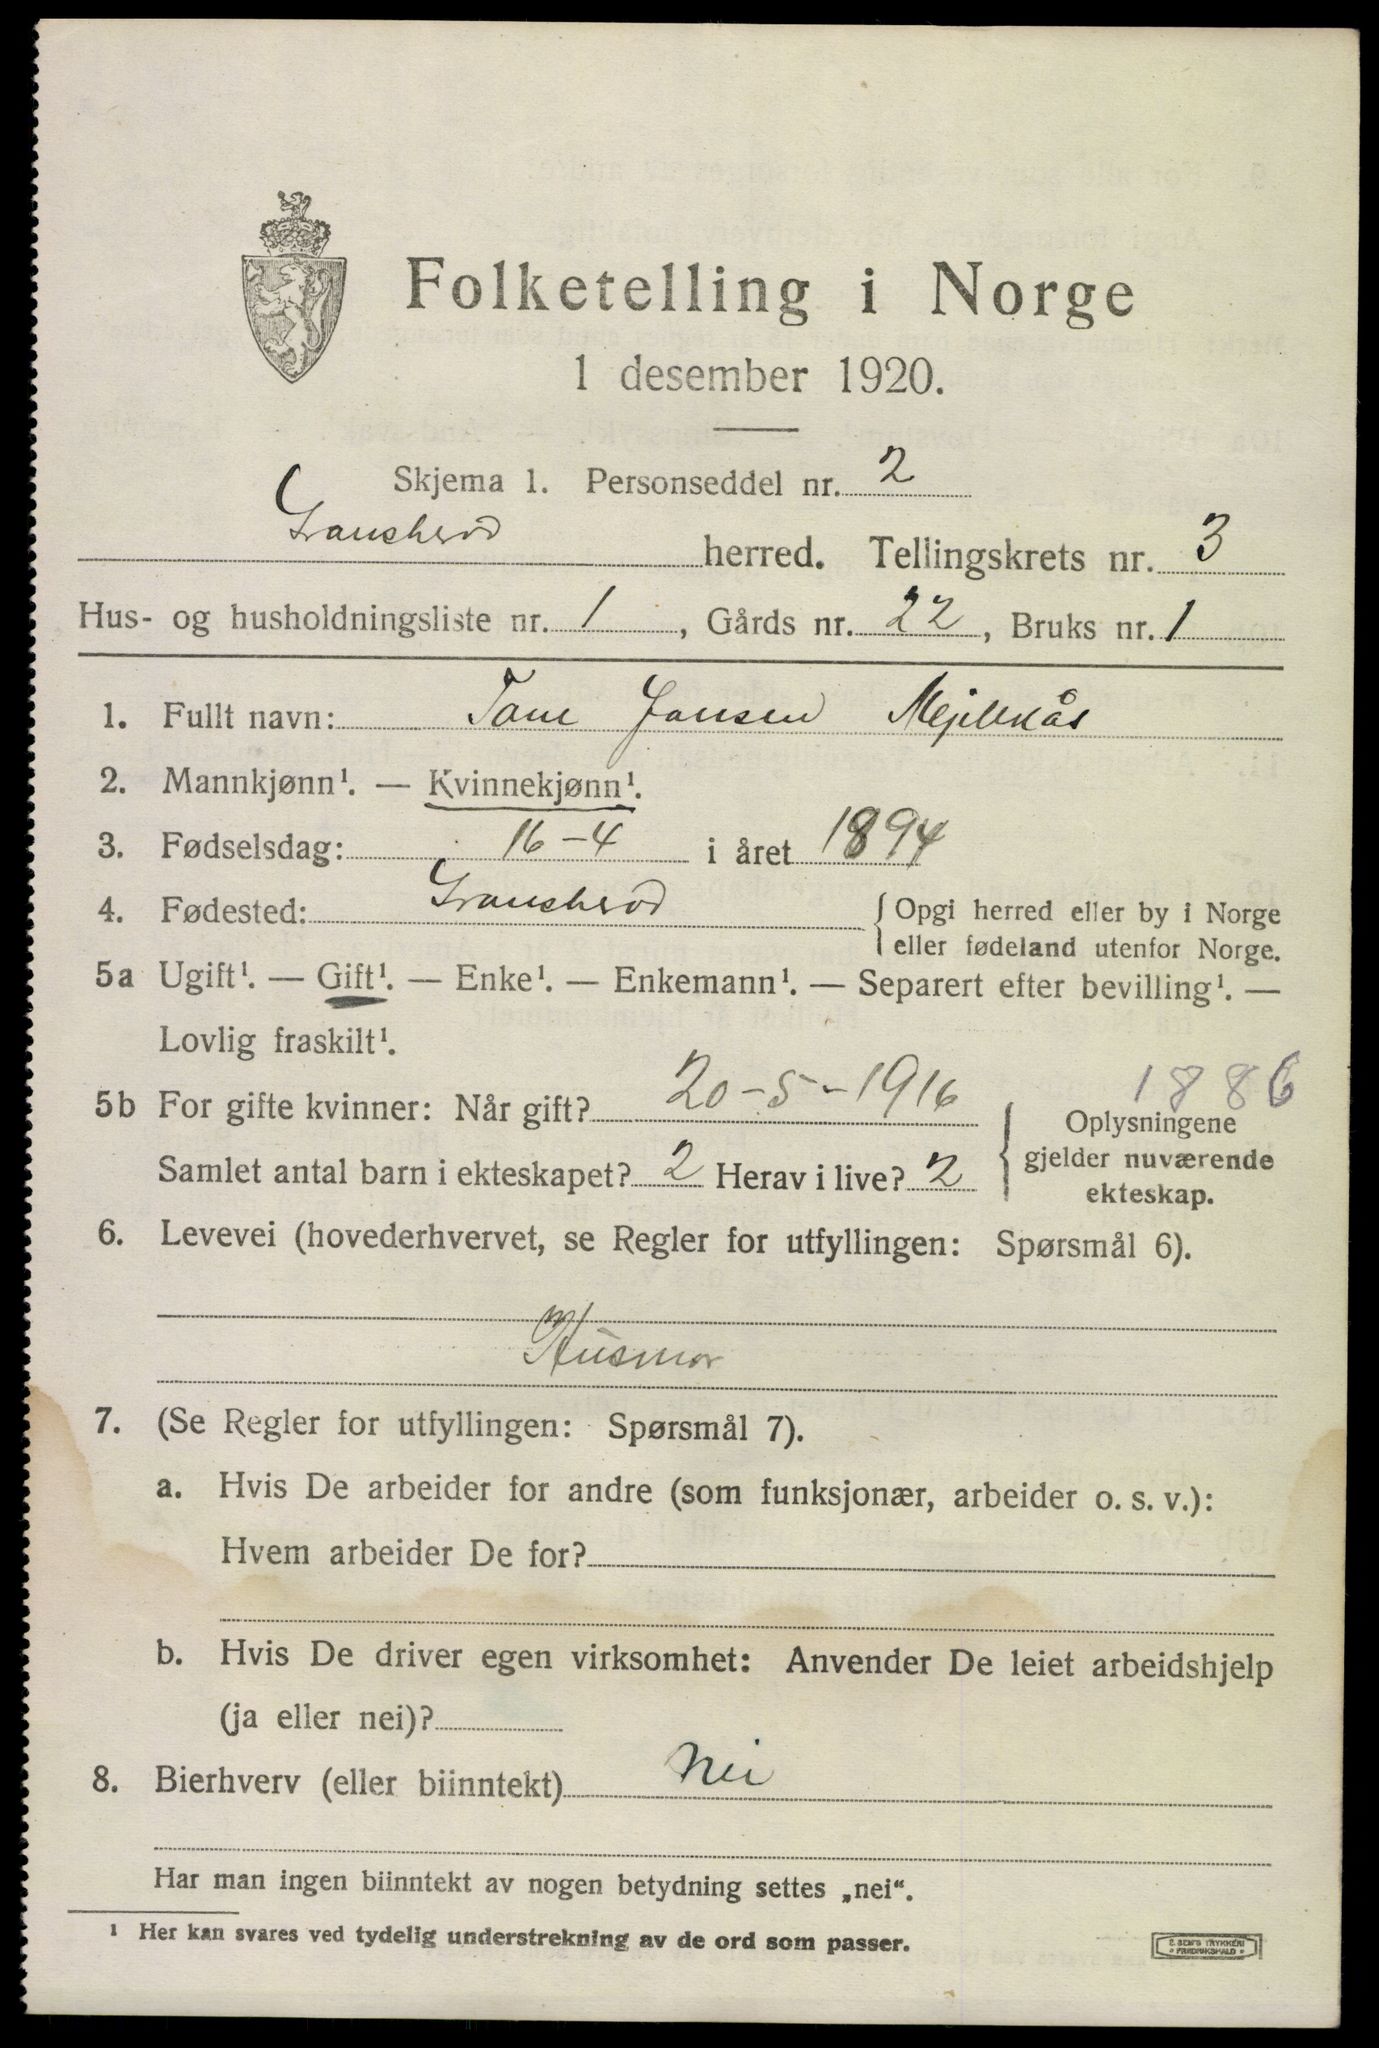 Folketelling i Norge
1 desember 1920.
Skjema 1. Personseddel nr. 2
Gransherød herred. Tellingskrets nr. 3
Hus- og husholdningsliste nr. 1, Gårds nr. 22, Bruks nr. 1
1. Fullt navn: Tone Jansen Mjellekås
2. Mannkjønn¹. — Kvinnekjønn¹.
3. Fødselsdag: 16-4 i året 1894
4. Fødested: Gransherød { Opgi herred eller by i Norge
eller fødeland utenfor Norge.
5a Ugift¹. — Gift¹. — Enke¹. — Enkemann¹. — Separert efter bevilling¹. —
Lovlig fraskilt¹.
1886
5b For gifte kvinner: Når gift? 20-5-1916
Samlet antal barn i ekteskapet? 2 Herav i live? 2
{ Oplysningene
gjelder nuværende
ekteskap.
6. Levevei (hovederhvervet, se Regler for utfyllingen: Spørsmål 6).
m
Husmor
7. (Se Regler for utfyllingen: Spørsmål 7).
a. Hvis De arbeider for andre (som funksjonær, arbeider o. s. v.):
Hvem arbeider De for?
b. Hvis De driver egen virksomhet: Anvender De leiet arbeidshjelp
(ja eller nei)?
8. Bierhverv (eller biinntekt) Nei
Har man ingen biinntekt av nogen betydning settes „nei“.
¹ Her kan svares ved tydelig understrekning av de ord som passer.
E. SEM'S TRYKKERI
• FREDRIKSHALD •